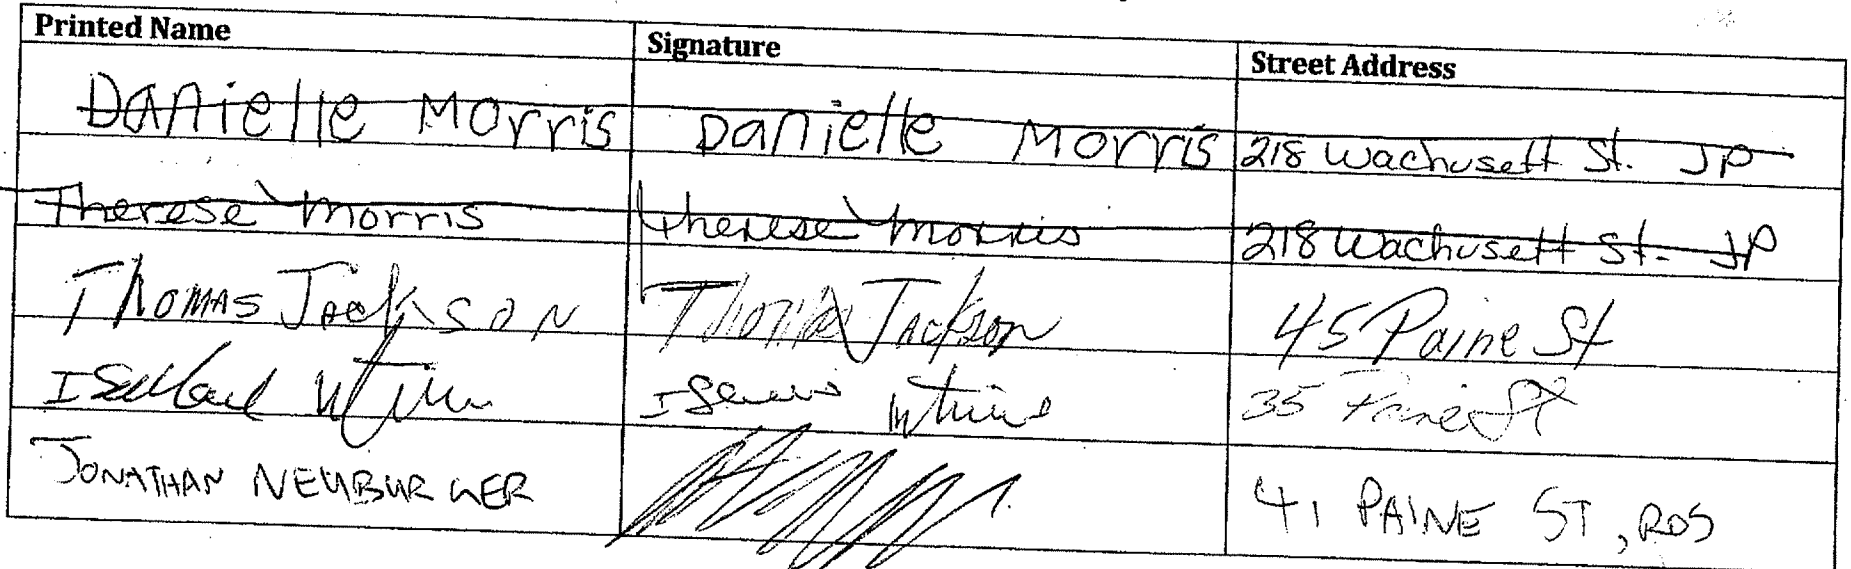 Printed Name Signature Street Address
Danielle Morris Danielle Morris 218 Wachusett St. JP
Therese Morris Therese Morris 218 Wachusett St. JP
Thomas Jackson Thomas Jackson 45 Paine St
35 Paine St
JONATHAN NEUBURGER 41 PAINE ST, ROS